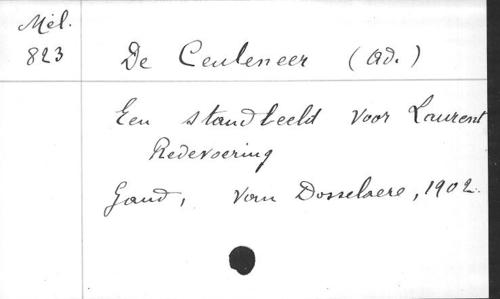 Mél.
823
De Ceuleneer (Ad.)
Een standbeeld voor Laurent
Redevoering
Gand, Van Dosselaere, 1902.